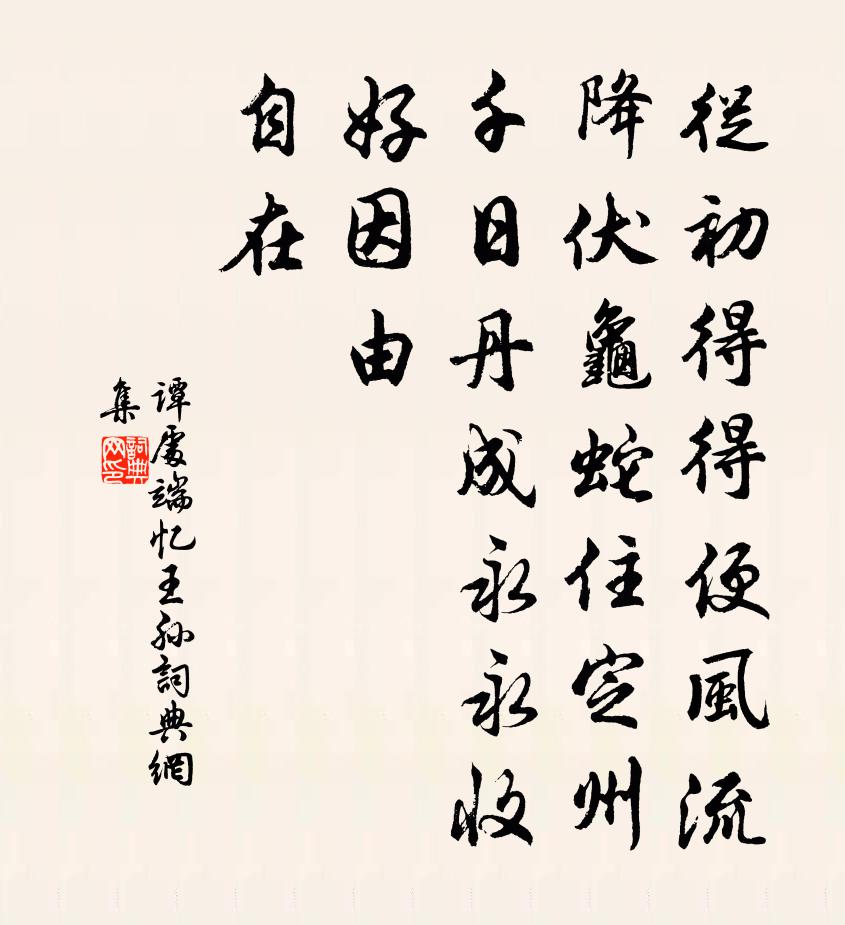 從初得得便風流
降伏龜蛇住定州
千日丹成永永收
好因由
自在
譚處端忆王孙詞典網
集
詞典网印